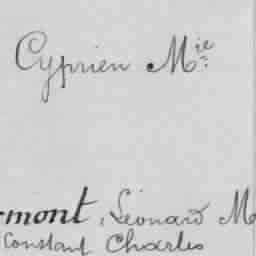 Cyprien Mie
-mont, Léonard M
Constant Charles